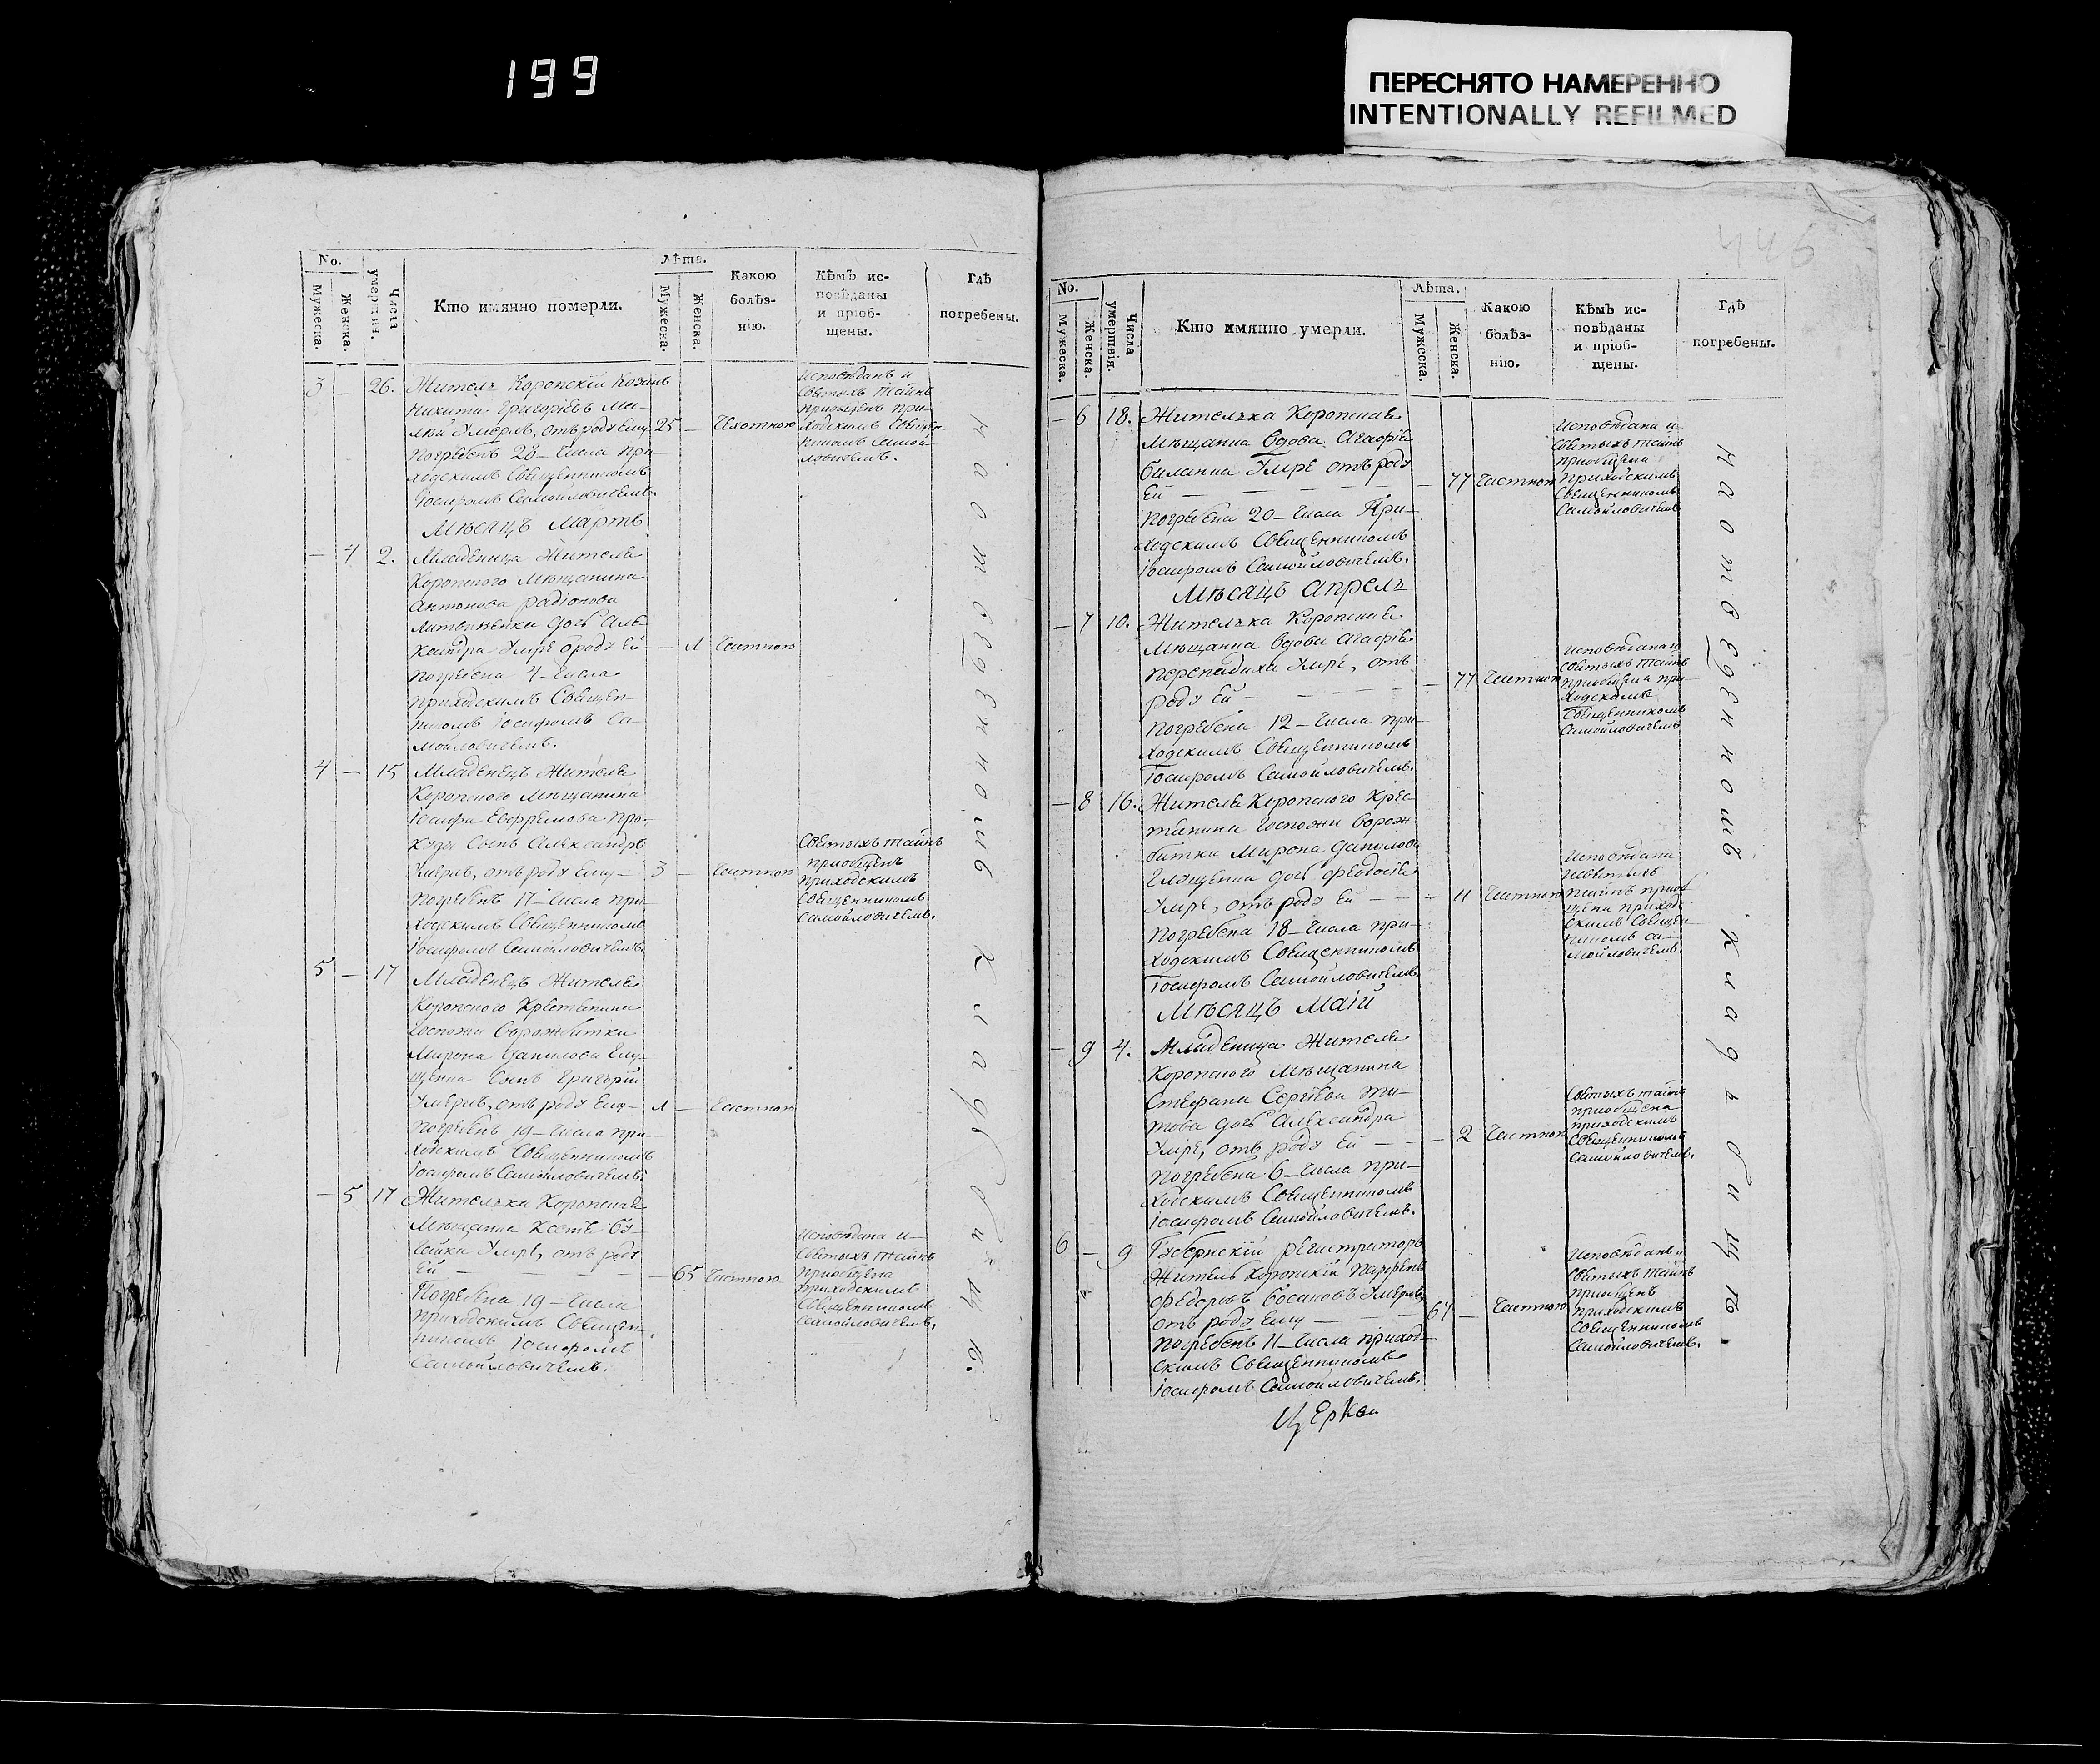 199
ПЕРЕСНЯТО НАМЕРЕННО
INTENTIONALLY REFILMED
446
No.
Мужеска.
Женска.
Числа умертвія.
Кто имянно померли.
Лѣта.
Мужеска.
Женска.
Какою болѣз- нію.
Кѣмъ ис- повѣданы и пріоб- щены.
Гдѣ погребены.
3 — 26. Житель Коропскій Козакъ
Никита Григоріевъ
умерлъ, отъ роду ему 25 —
Погребенъ 28 — числа при-
ходскимъ Священникомъ
Іосифомъ Самойловичемъ.
Исповѣданъ и
Святыхъ Таинъ
приобщенъ при-
ходскимъ Священ-
никомъ Самой-
ловичемъ.
Мѣсяцъ Мартъ
— 4 2. Младеница Жителя
Коропского Мѣщанина
Антонова Радіонова
Литвиненка дочь Але-
ксандра умре отроду Ей — — Л Чистною
Погребена 4 — числа
приходскимъ Священ-
никомъ Іосифомъ Са-
мойловичемъ.
4 — 15 Младенецъ Жителя
Коропского Мѣщанина
Іосифа Ефремова Про-
Сынъ Александръ
умерлъ, отъ роду ему — 3 — Чистною
Погребенъ 17 — числа при-
ходскимъ Священникомъ
Іосифомъ Самойловичемъ
Святыхъ Таинъ
приобщенъ
приходскимъ
Священникомъ
Самойловичемъ.
5 — 17 Младенецъ Жителя
Коропского Крестянина
Госпожи Ворожбитки
Мирона Данилова
Сынъ Григорій
умерлъ, отъ роду ему — Л — Чистною
Погребенъ 19 — числа при-
ходскимъ Священникомъ
Іосифомъ Самойловичемъ.
— 5 17 Жителька Коропская
Мѣщанка Ксенія
умре, отъ роду
Ей — — — 65 Чистною
Погребена 19 — числа
приходскимъ Священ-
никомъ Іосифомъ
Самойловичемъ.
Исповѣдана и
Святыхъ Таинъ
приобщена
приходскимъ
Священникомъ
Самойловичемъ.
на отведенномъ кладбищѣ.
No.
Мужеска.
Женска.
Числа умертвія.
Кто имянно умерли.
Лѣта.
Мужеска.
Женска.
Какою болѣз- нію.
Кѣмъ ис- повѣданы и пріоб- щены.
Гдѣ погребены.
— 6 18. Жителька Коропская
Мѣщанка вдова Агафія
умре отъ роду
Ей — — — 77 Чистною
Погребена 20 — числа При-
ходскимъ Священникомъ
Іосифомъ Самойловичемъ.
Исповѣдана и
Святыхъ Таинъ
приобщена
приходскимъ
Священникомъ
Самойловичемъ
Мѣсяцъ Апрель
— 7 10. Жителька Коропская
Мѣщанка вдова Агафія
умре, отъ
роду Ей — — — 77 Чистною
Погребена 12 — числа при-
ходскимъ Священникомъ
Іосифомъ Самойловичемъ.
Исповѣдана и
Святыхъ Таинъ
приобщена при-
ходскимъ
Священникомъ
Самойловичемъ
— 8 16. Жителя Коропского Крес-
тянина Госпожи Ворож-
битки Мирона Данилова
дочь Феодосія
умре, отъ роду Ей — — 11 Чистною
Погребена 18 — числа при-
ходскимъ Священникомъ
Іосифомъ Самойловичемъ
Исповѣдана
и Святыхъ
Таинъ приоб
щена приход
скимъ Священ-
никомъ Са-
мойловичемъ.
Мѣсяцъ Маій
— 9 4. Младеница Жителя
Коропского Мѣщанина
Стефана Сергіева Ти-
това дочь Александра
умре, отъ роду Ей — — 2 Чистною
Погребена 6 — числа при-
ходскимъ Священникомъ
Іосифомъ Самойловичемъ.
Святыхъ таинъ
приобщена
приходскимъ
Священникомъ
Самойловичемъ.
6 — 9 Губернскій регистраторъ
Житель Коропскій Парфенъ
Федоровъ умерлъ,
отъ роду Ему — — 67 — Чистною
Погребенъ 11 — числа приход-
скимъ Священникомъ
Іосифомъ Самойловичемъ.
Исповѣданъ и
Святыхъ Таинъ
приобщенъ
приходскимъ
Священникомъ
Самойловичемъ.
на отведенномъ кладбищѣ.
Церкви